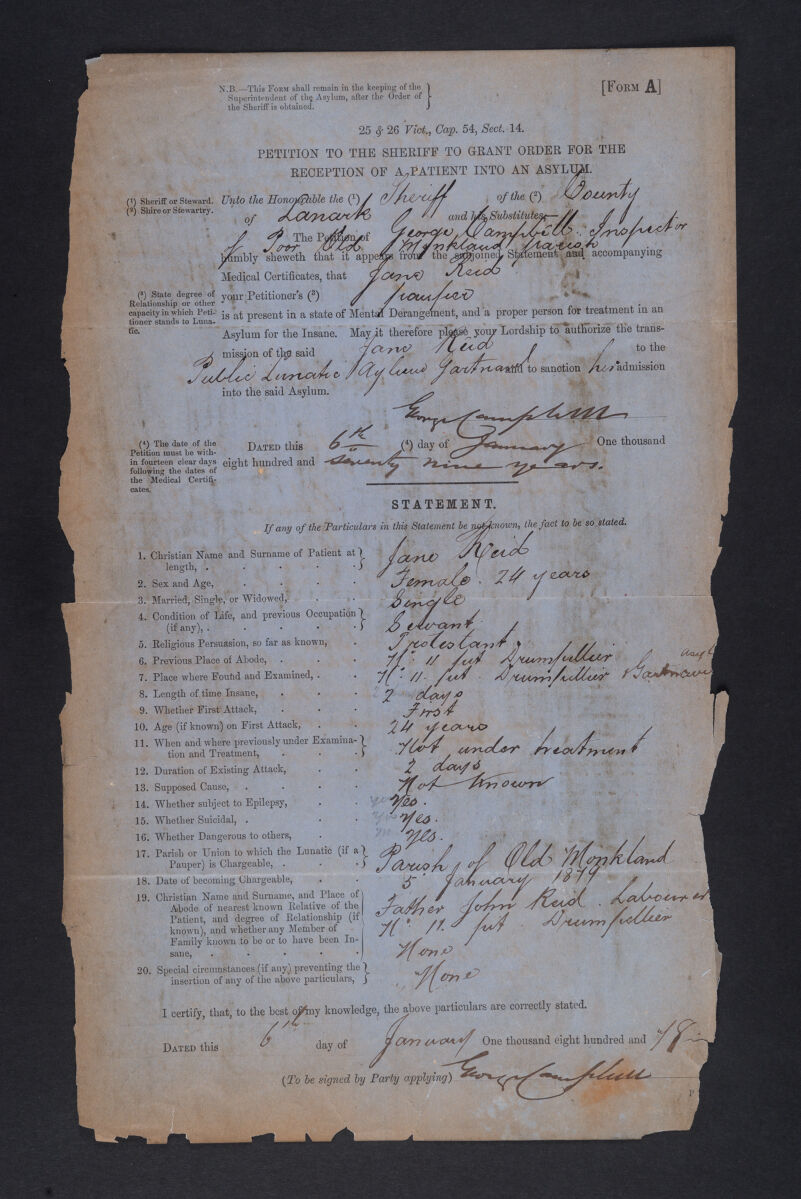 N.B.—This Form shall remain in the keeping of the
Superintendent of the Asylum, after the Order of
the Sheriff is obtained.
[Form A]
25 & 26 Vict., Cap. 54, Sect. 14.
PETITION TO THE SHERIFF TO GRANT ORDER FOR THE
RECEPTION OF A PATIENT INTO AN ASYLUM.
(1) Sheriff or Steward.
(2) Shire or Stewartry.
Unto the Honourable the (1) Sheriff of the (2) County
of Lanark and his Substitutes
The Petition of George Campbell. Inspector
of Poor Old Monkland parish
humbly sheweth that it appears from the subjoined Statement and accompanying
Medical Certificates, that Jane Reid
(3) State degree of
Relationship or other
capacity in which Peti-
tioner stands to Luna-
tic.
your Petitioner's (3)
is at present in a state of Mental Derangement, and a proper person for treatment in an
Asylum for the Insane. May it therefore please your Lordship to authorize the trans-
mission of the said Jane Reid to the
Public Lunatic Asylum Gartnavel and to sanction his admission
into the said Asylum.
George Campbell
(4) The date of the
Petition must be with-
in fourteen clear days
following the dates of
the Medical Certifi-
cates.
Dated this 6th (4) day of January One thousand
eight hundred and seventy nine years.
STATEMENT.
If any of the Particulars in this Statement be not known, the fact to be so stated.
1. Christian Name and Surname of Patient at
length, . Jane Reid
2. Sex and Age, Female. 24 years
3. Married, Single, or Widowed, Single
4. Condition of Life, and previous Occupation
(if any), . Servant
5. Religious Persuasion, so far as known, Protestant
6. Previous Place of Abode, No. 11 pit Drumpellier
7. Place where Found and Examined, No. 11. pit. Drumpellier & Gartnavel
8. Length of time Insane, 2 days
9. Whether First Attack, First
10. Age (if known) on First Attack, 24 years
11. When and where previously under Examina-
tion and Treatment, Not under treatment
12. Duration of Existing Attack, 2 days
13. Supposed Cause, Not known
14. Whether subject to Epilepsy, Yes.
15. Whether Suicidal, . Yes.
16. Whether Dangerous to others, Yes.
17. Parish or Union to which the Lunatic (if a
Pauper) is Chargeable, . Parish of Old Monkland
18. Date of becoming Chargeable, 5 January 1879
19. Christian Name and Surname, and Place of
Abode of nearest known Relative of the
Patient, and degree of Relationship (if
known), and whether any Member of
Family known to be or to have been In-
sane, .
Father John Reid. Labourer
No. 11. pit. Drumpellier
None
20. Special circumstances (if any) preventing the
insertion of any of the above particulars, None
I certify, that, to the best of my knowledge, the above particulars are correctly stated.
Dated this 6th day of January One thousand eight hundred and
(To be signed by Party applying) George Campbell
P